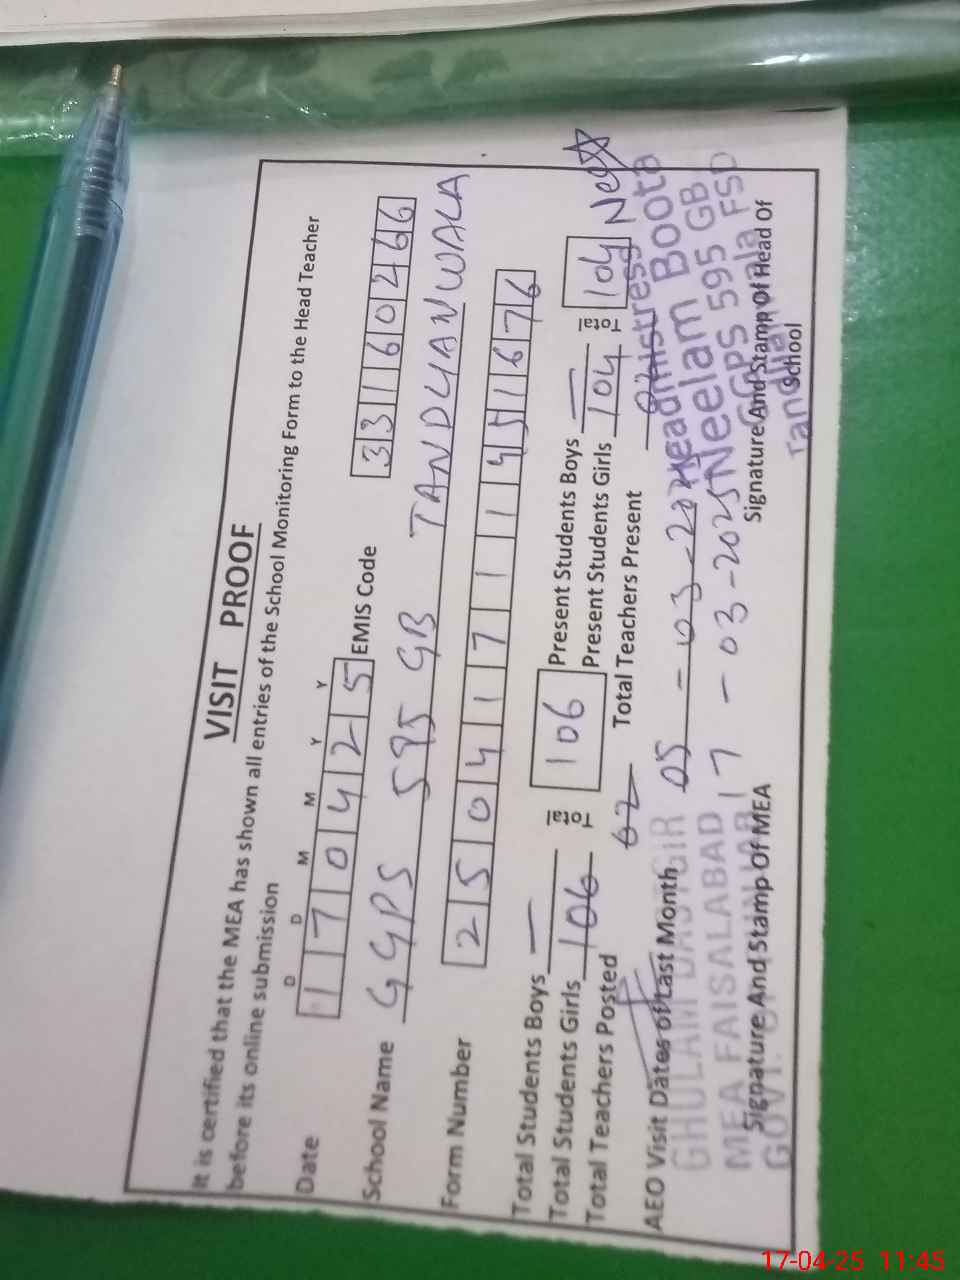 VISIT PROOF
It is certified that the MEA has shown all entries of the School Monitoring Form to the Head Teacher
before its online submission
D D M M Y Y
Date 1 7 0 4 2 5 EMIS Code 3 3 1 6 0 2 6 6
School Name GGPS 595 GB TANDLYANWALA
Form Number 2 5 0 4 1 7 1 1 1 4 5 1 6 7 6
Total Students Boys — Total 106 Present Students Boys — Total 104
Total Students Girls 106 Present Students Girls 104
Total Teachers Posted 02 Total Teachers Present 02
AEO Visit Dates of Last Month 05 - 03 - 2025
17 - 03 - 2025
GHULAM DASTGIR
MEA FAISALABAD
GOVT. OF PUNJAB
Signature And Stamp Of MEA
Headmistress
Neelam Boota
GGPS 595 GB
Tandlianwala FSD
Signature And Stamp Of Head Of
School
17-04-25 11:45